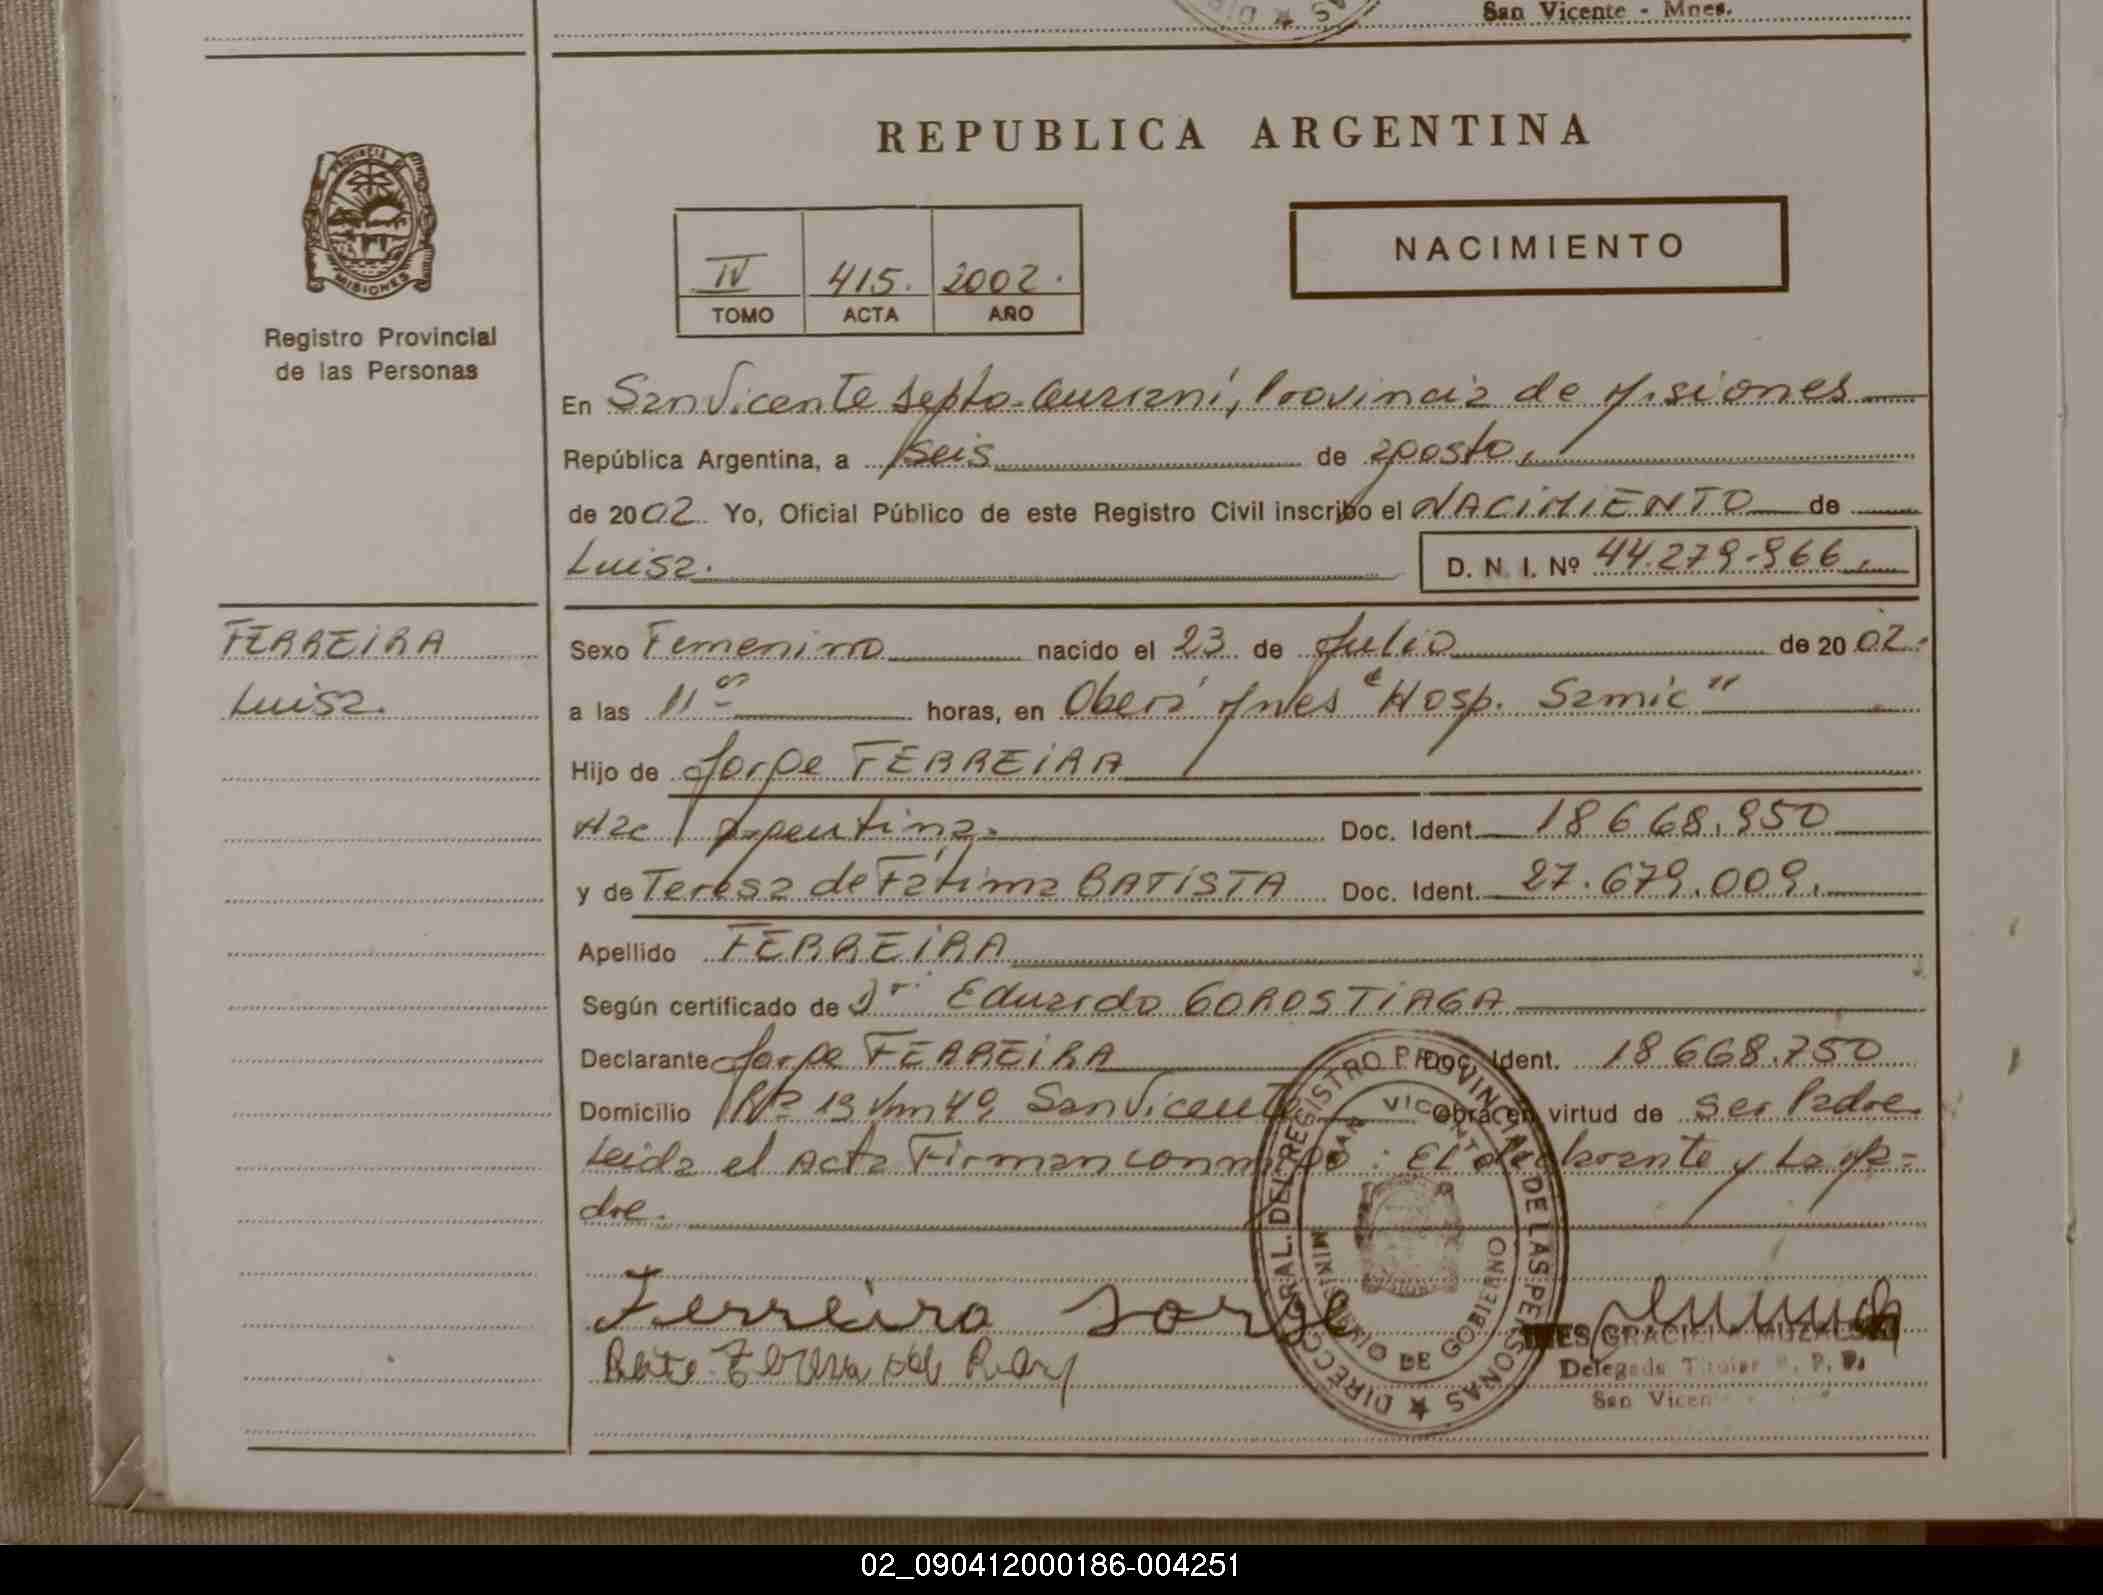 San Vicente - Mnes.
REPUBLICA ARGENTINA
PROVINCIA
MISIONES
Registro Provincial
de las Personas
IV 415. 2002.
TOMO ACTA AÑO
NACIMIENTO
En San Vicente Depto. Guaraní, Provincia de Misiones
República Argentina, a seis de agosto,
de 2002. Yo, Oficial Público de este Registro Civil inscribo el NACIMIENTO de
Luisa. D. N. I. Nº 44.279.966.
FERREIRA
Luisa.
Sexo Femenino nacido el 23 de Julio de 2002.
a las 11 hs horas, en Oberá Mnes "Hosp. Samic"
Hijo de Jorge FERREIRA
Nac Argentina. Doc. Ident. 18668.950
y de Teresa de Fátima BATISTA Doc. Ident. 27.679.009.
Apellido FERREIRA
Según certificado de Dr. Eduardo GOROSTIAGA
Declarante Jorge FERREIRA Doc. Ident. 18668.750
Domicilio Rº 13 Km 40, San Vicente Obra en virtud de ser Padre.
Leida el Acta Firman conmigo: El declarante y La Ma-
dre.
Ferreira Jorge
DIRECC. GRAL. DEL REGISTRO PROVINCIAL DE LAS PERSONAS
SAN VICENTE
MINISTERIO DE GOBIERNO
INES GRACIELA
Delegada Titular R. P. P.
San Vicen
02_090412000186-004251